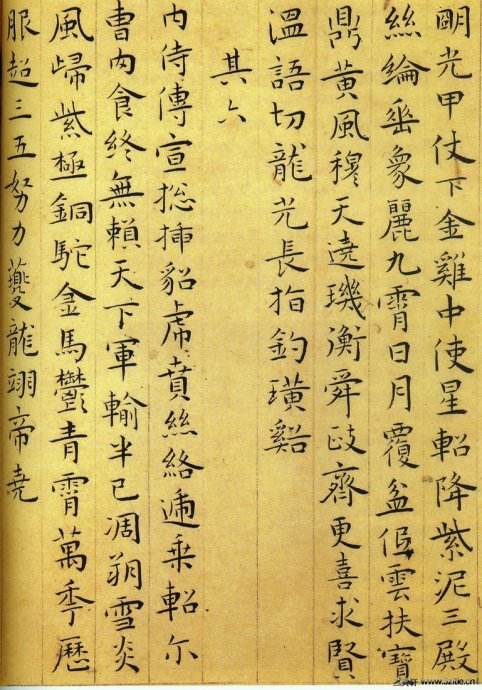 朙光甲仗下金雞中使星軺降紫泥三殿
絲綸垂象麗九霄日月覆盆低雲扶寶
鼎黃風穆天遶璣衡舜政齊更喜求賢
溫語切龍光長指釣璜谿
其六
内侍傳宣揔插貂虎賁絲絡遞乗軺尓
曹肉食終無賴天下軍輸半已凋朔雪炎
風歸紫極銅駝金馬鬱青霄萬秊歷
服超三五努力夔龍翊帝堯